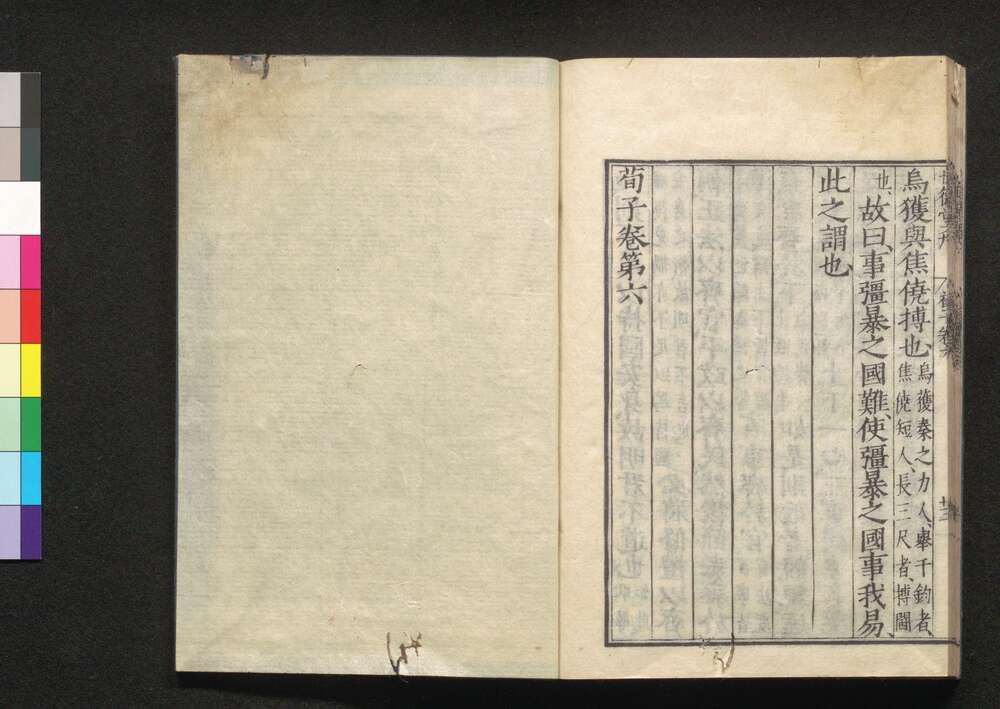 烏獲與焦僥搏也、烏獲秦之力人、舉千鈞者、
焦僥短人、長三尺者、搏鬬
也、故曰、事彊暴之國難、使彊暴之國事我易、
此之謂也、
荀子卷第六